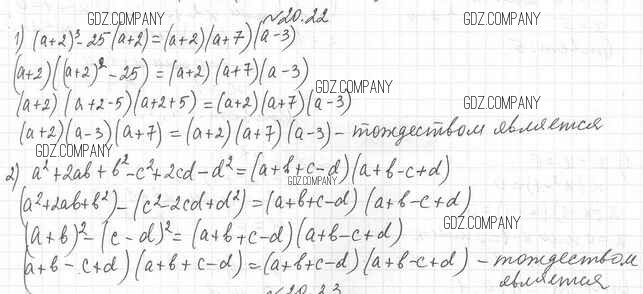 GDZ.COMPANY
№20.22
1) (a+2)³-25(a+2)=(a+2)(a+7)(a-3)
(a+2)((a+2)²-25)=(a+2)(a+7)(a-3)
GDZ.COMPANY
GDZ.COMPANY
(a+2)(a+2-5)(a+2+5)=(a+2)(a+7)(a-3)
GDZ.COMPANY
(a+2)(a-3)(a+7)=(a+2)(a+7)(a-3)-тождеством является
GDZ.COMPANY
2) a²+2ab+b²-c²+2cd-d²=(a+b+c-d)(a+b-c+d)
GDZ.COMPANY
(a²+2ab+b²)-(c²-2cd+d²)=(a+b+c-d)(a+b-c+d)
GDZ.COMPANY
(a+b)²-(c-d)²=(a+b+c-d)(a+b-c+d)
(a+b-c+d)(a+b+c-d)=(a+b+c-d)(a+b-c+d)-тождеством
является
№20.23